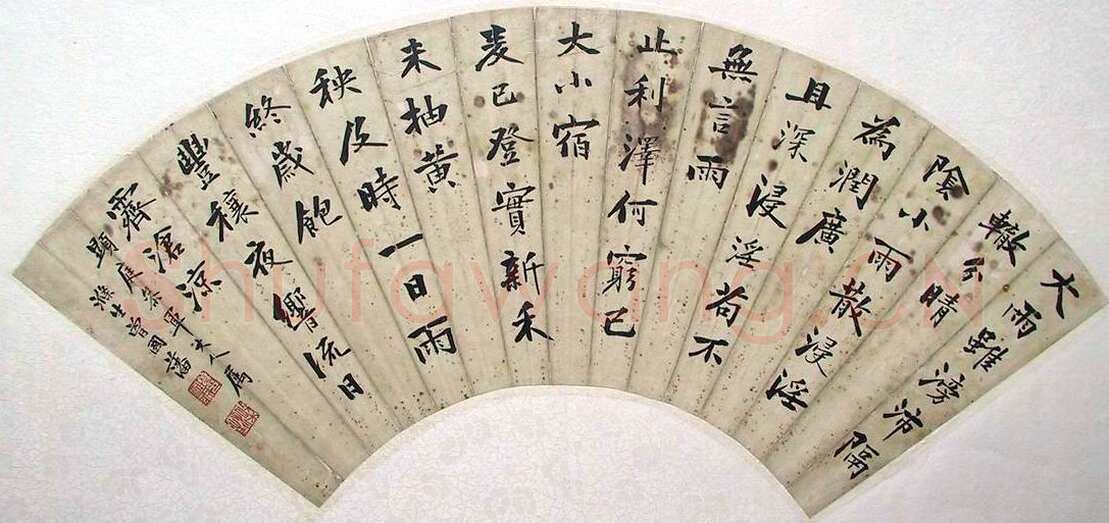 大雨雖滂沛隔
轍分晴
陰小雨散浸淫
為潤廣
且深浸淫苟不
無言雨
止利澤何窮已
大小宿
麥已登實新禾
未抽黃
秧及時一日雨
終歲飽
豐穰夜響流日
霽滄涼
顯庭軍大人屬
滌生曾國藩
Shufawang.CN